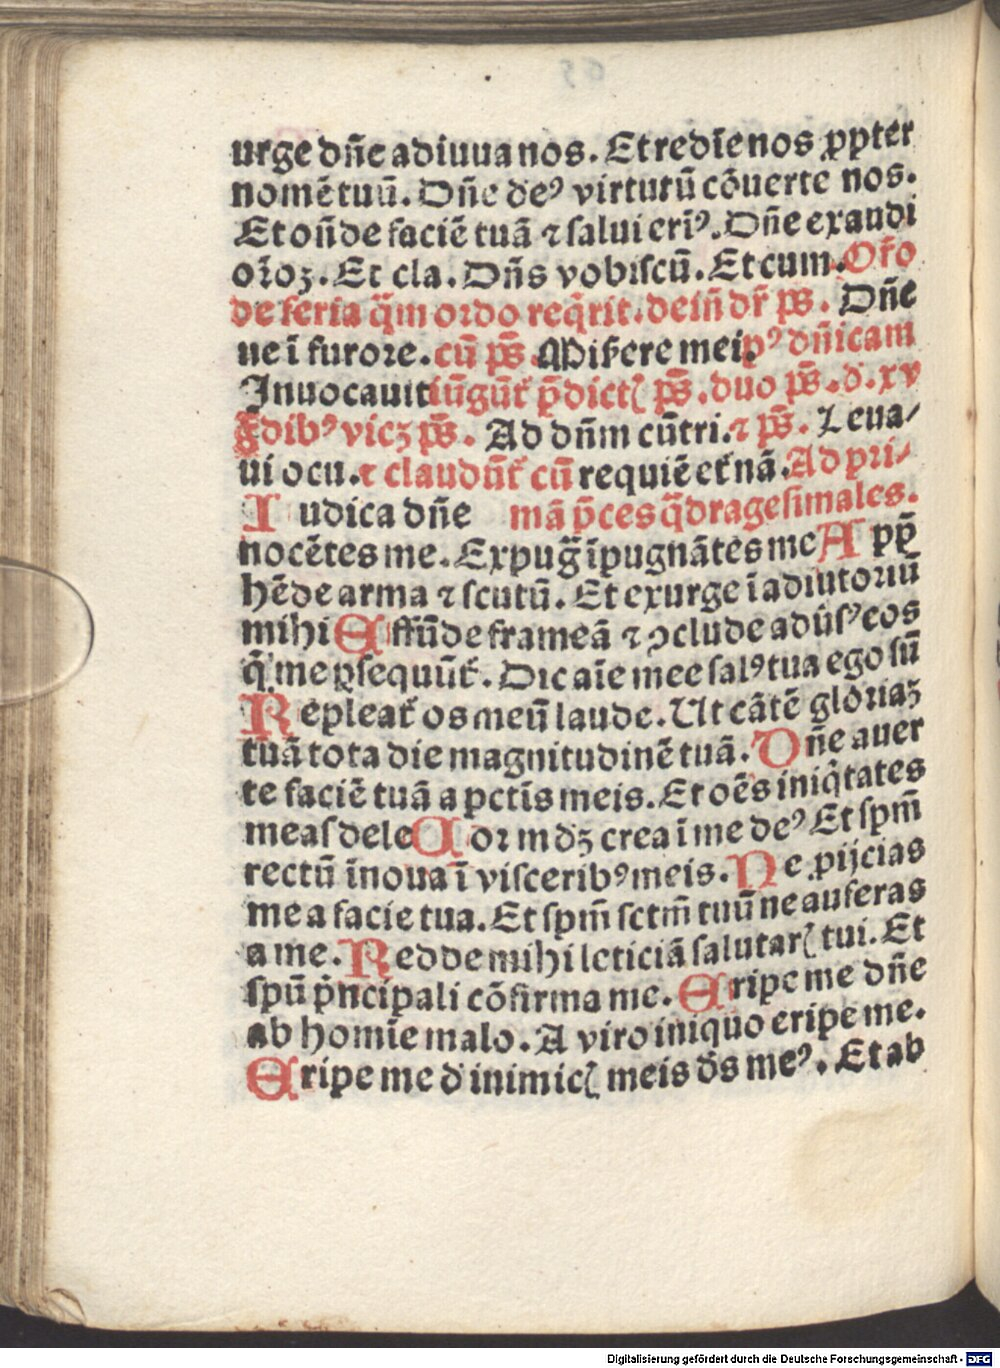 65
urge dñe adiuua nos. Et redīe nos ꝓpter
nomē tuū. Dñe deꝰ virtutū cōuerte nos.
Et oñde faciē tuā ⁊ salui eriꝰ. Dñe exaudi
oīoꝫ. Et cla. Dñs vobiſcū. Et cum. Or̄o
de feria q̄m ordo reqͥrit. dein̄ dr̄ ps̄. Dñe
ne ī furore. cū ps̄. Miſere mei. pꝰ dñicam
Inuocauit iūgūt᷑ p̄dictꝭ ps̄. duo ps̄. d. xv
g̊dibꝰ vicꝫ ps̄. Ad dn̄m cū tri. ⁊ ps̄. Leua⸗
ui ocu. ⁊ claudūt᷑ cū requiē et᷑nā. Ad pri⸗
Iudica dñe mā p̄ces q̄dragesimales.
nocētes me. Expug̃ īpugnātes me App̄
hēde arma ⁊ ſcutū. Et exurge ī adiutoriū
mihi Effūde frameā ⁊ ꝯclude adūſꝰ eos
q̄ me ꝑſequūt᷑. Dic aīe mee ſalꝰ tua ego ſū
Repleat᷑ os meū laude. Ut cātē gloriaꝫ
tuā tota die magnitudinē tuā. Dñe auer
te faciē tuā a pctīs meis. Et oēs iniqͥtates
meaſ dele Cor mdꝫ crea ī me deꝰ Et ſpm̄
rectū īnoua ī viſceribꝰ meis. Ne ꝓijcias
me a facie tua. Et ſpm̄ ſctm̄ tuū ne auferas
a me. Redde mihi leticiā ſalutarꝭ tui. Et
ſpū pͥncipali cōfirma me. Eripe me dñe
ab homīe malo. A viro iniquo eripe me.
Eripe me d̄ inimicꝭ meis d̄s meꝰ. Et ab
Digitalisierung gefördert durch die Deutsche Forschungsgemeinschaft - DFG